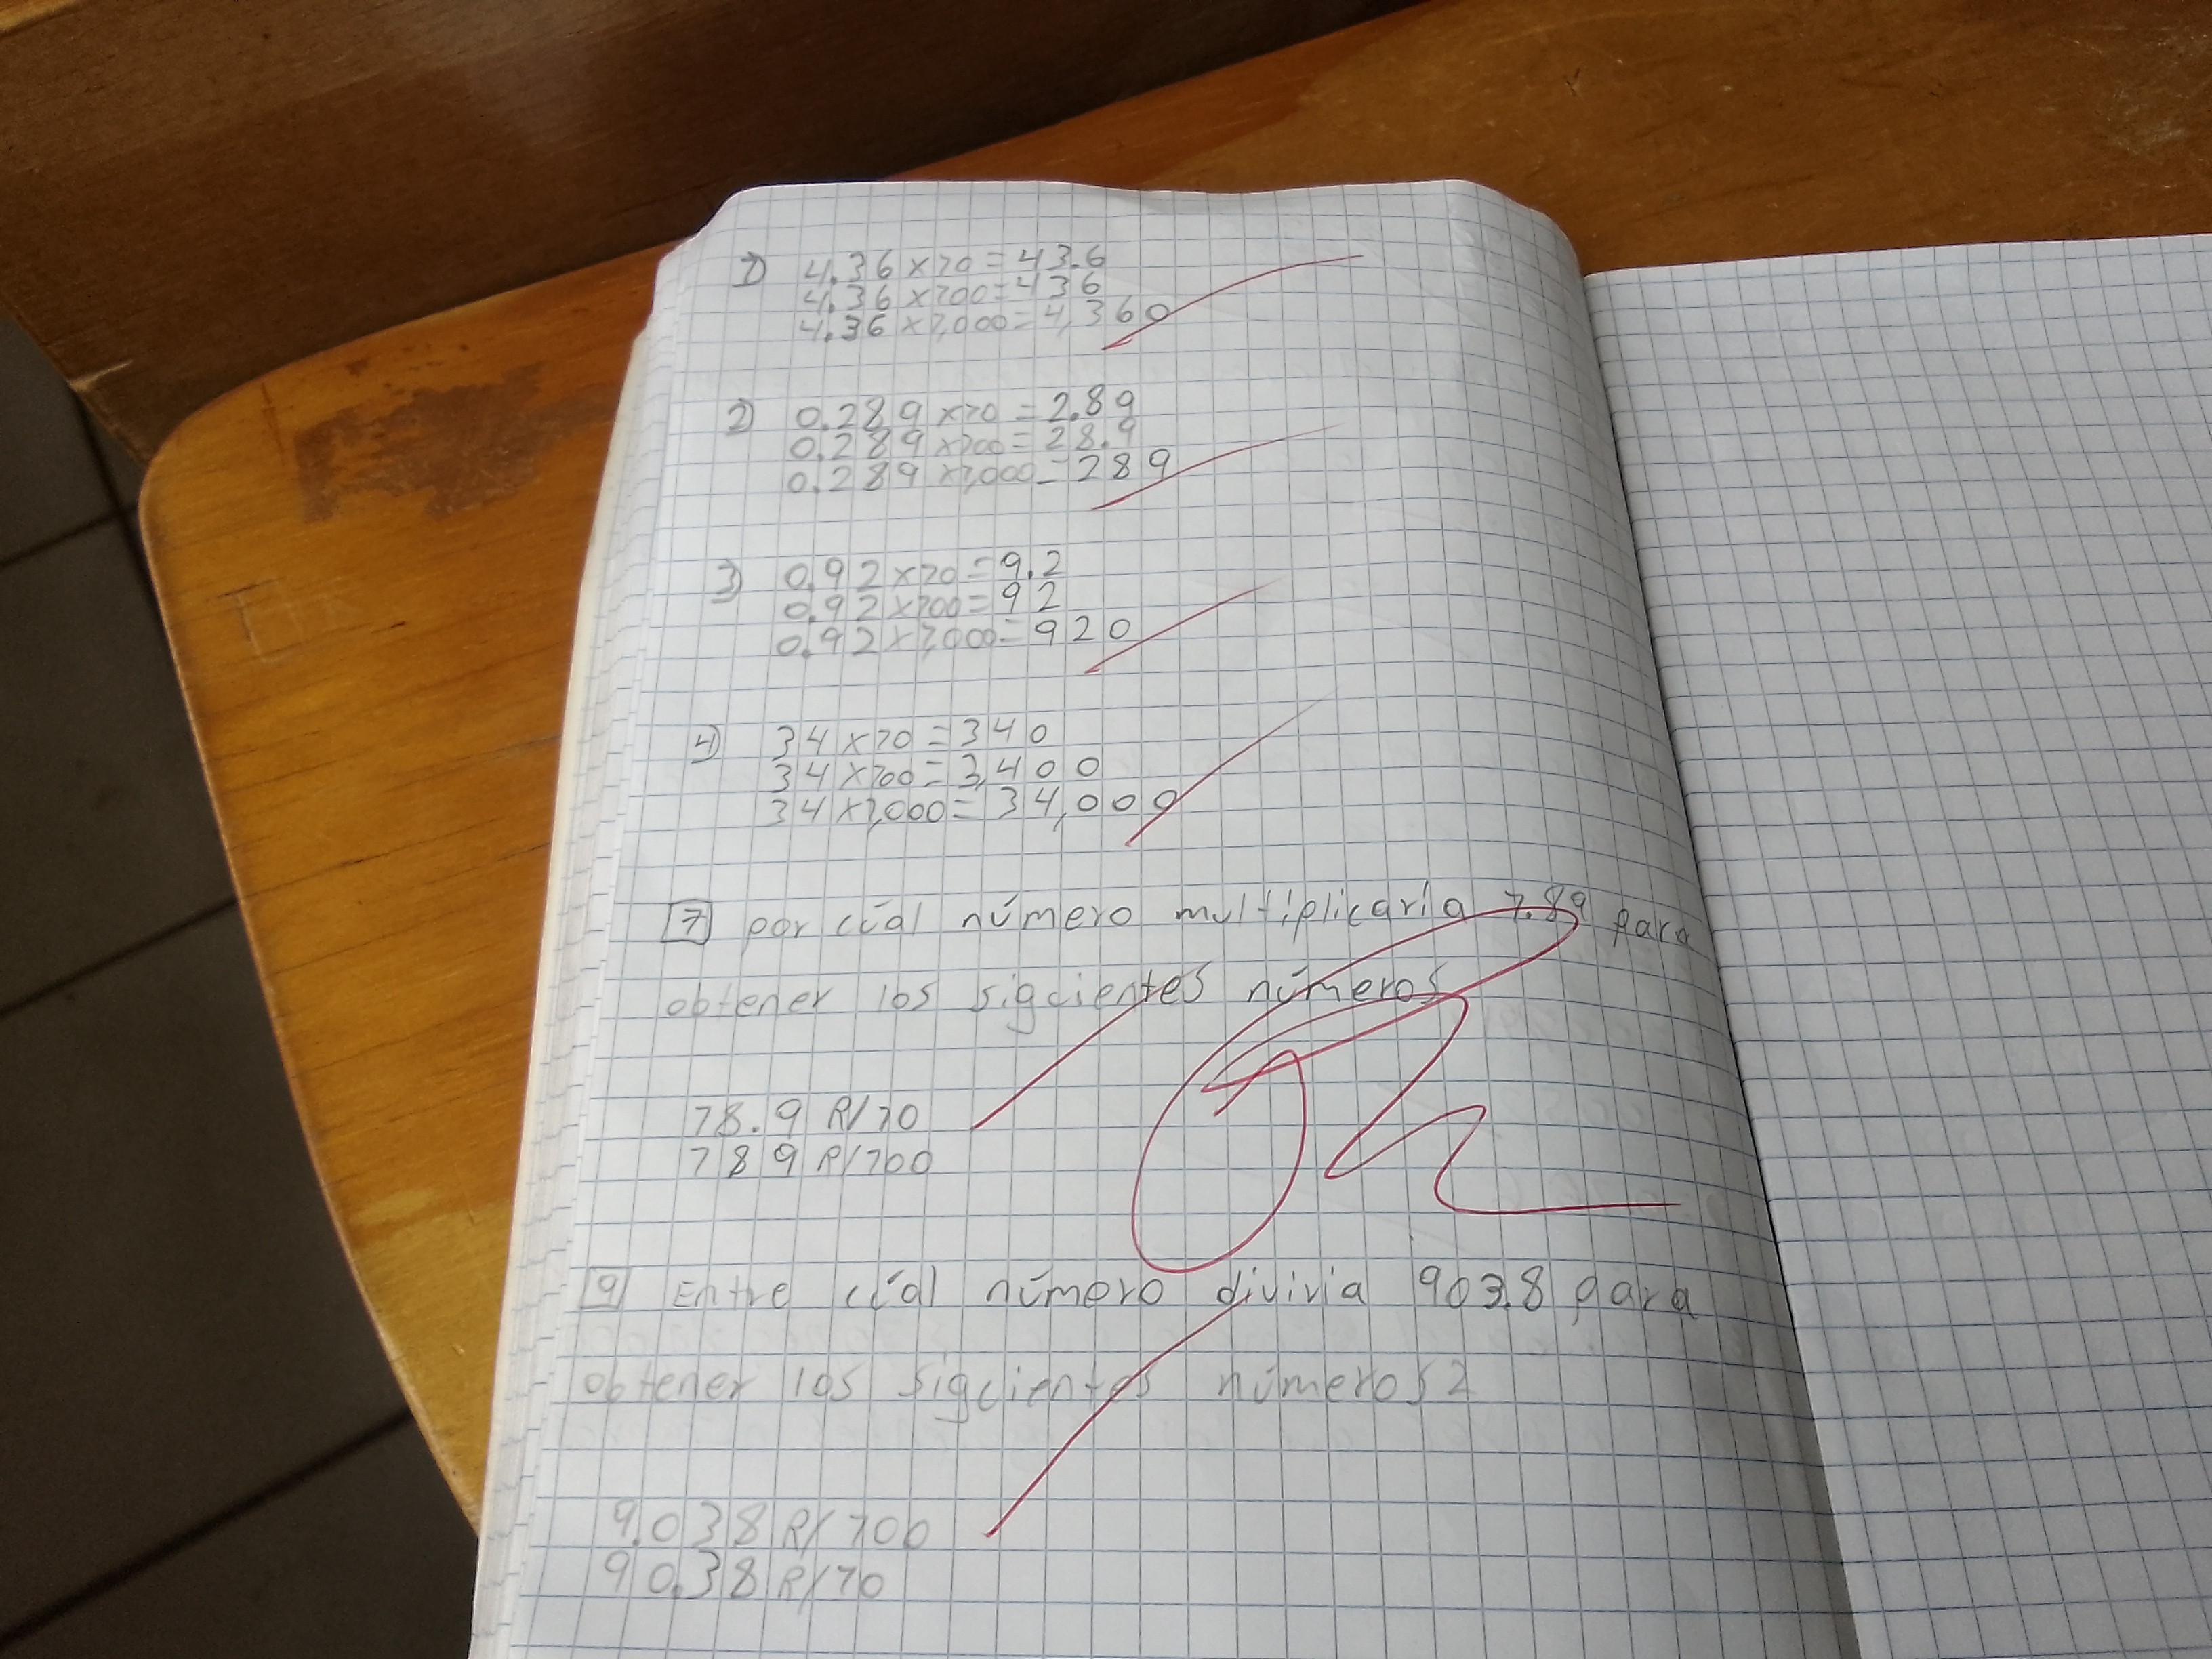 1) 4.36 x 10 = 43.6
4.36 x 100 = 436
4.36 x 1,000 = 4,360
2) 0.289 x 10 = 2.89
0.289 x 100 = 28.9
0.289 x 1,000 = 289
3) 0.92 x 10 = 9.2
0.92 x 100 = 92
0.92 x 1,000 = 920
4) 34 x 10 = 340
34 x 100 = 3,400
34 x 1,000 = 34,000
7 por cúal número multiplicaría 7.89 para
obtener los sigcientes números
78.9 R/ 10
789 R/ 100
9 Entre cúal número diviria 903.8 para
obtener los sigcientes números?
9.038 R/ 100
90.38 R/ 10